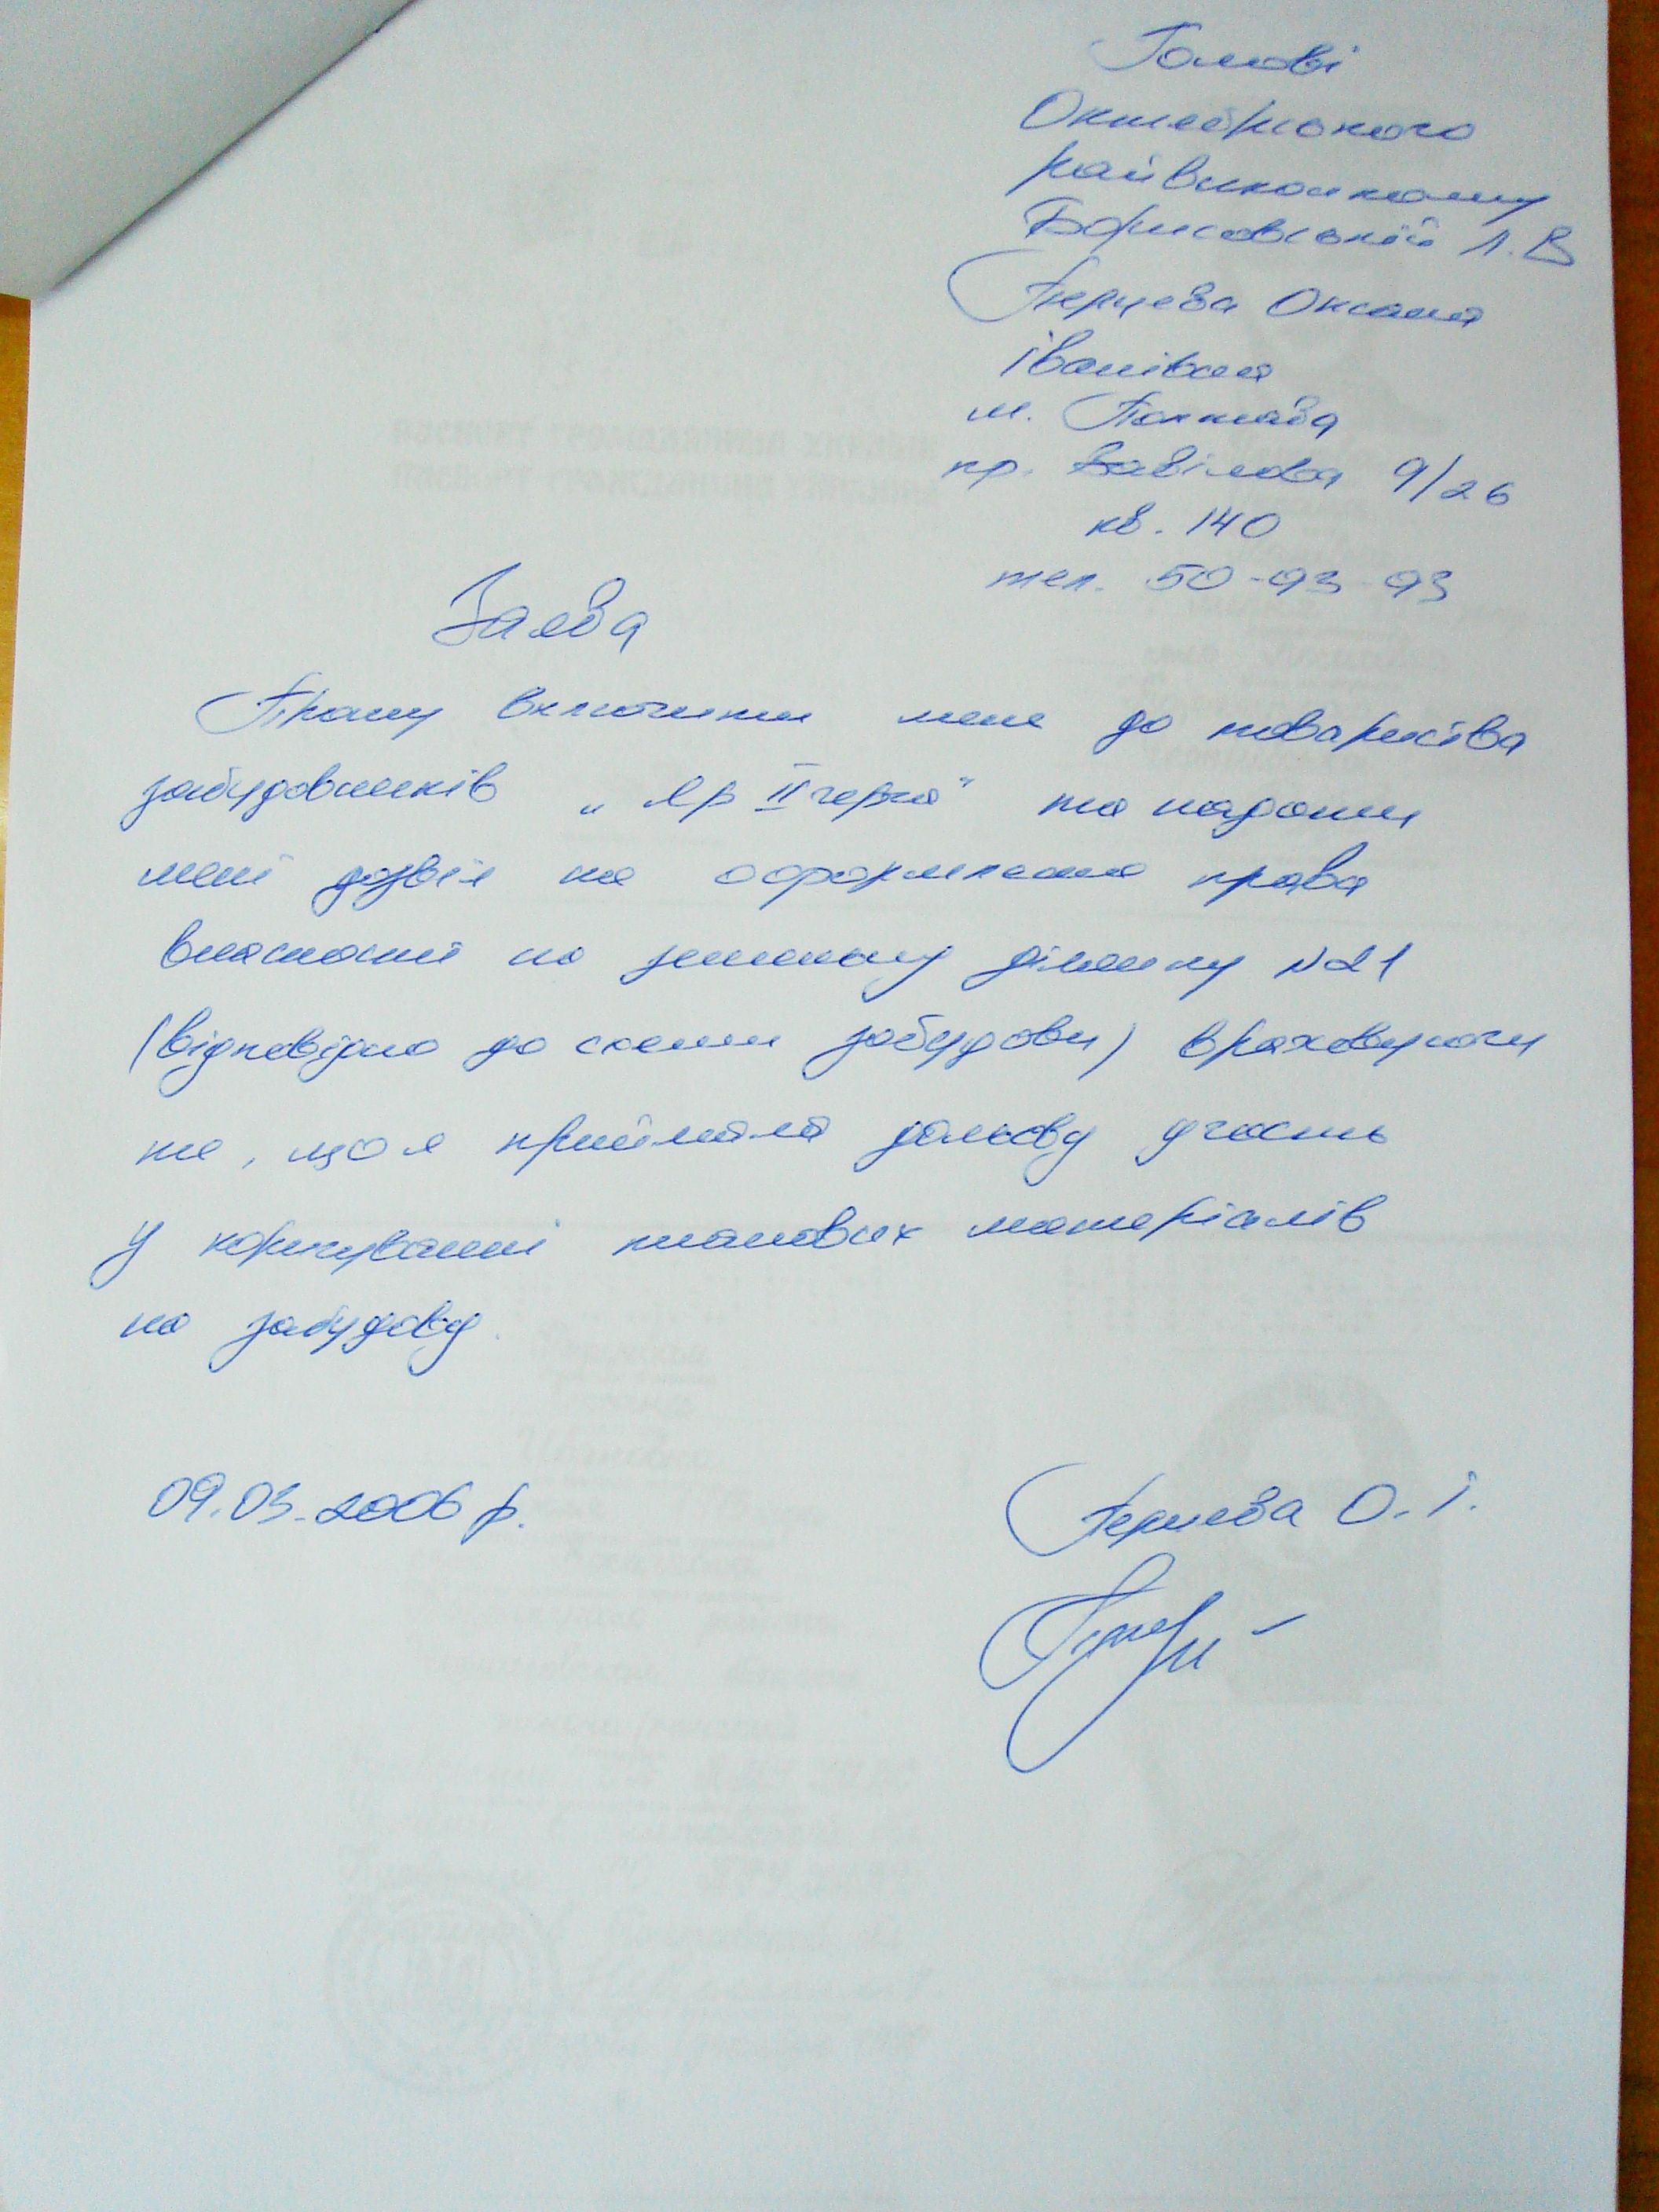 Голові
Октябрського
райвиконкому
Борисовській Л.В
Перцева Оксана
Іванівна
м. Полтава
пр. Вавілова 9/26
кв. 140
тел. 50-93-93
Заява
Прошу включити мене до товариства
забудовників „Яр II черга" та надати
мені дозвіл на оформлення права
власності на земельну ділянку №21
(відповідно до схеми забудови) враховуючи
те, що я приймала дольову участь
у коригуванні планових матеріалів
на забудову.
09.03.2006 р.
Перцева О. І.